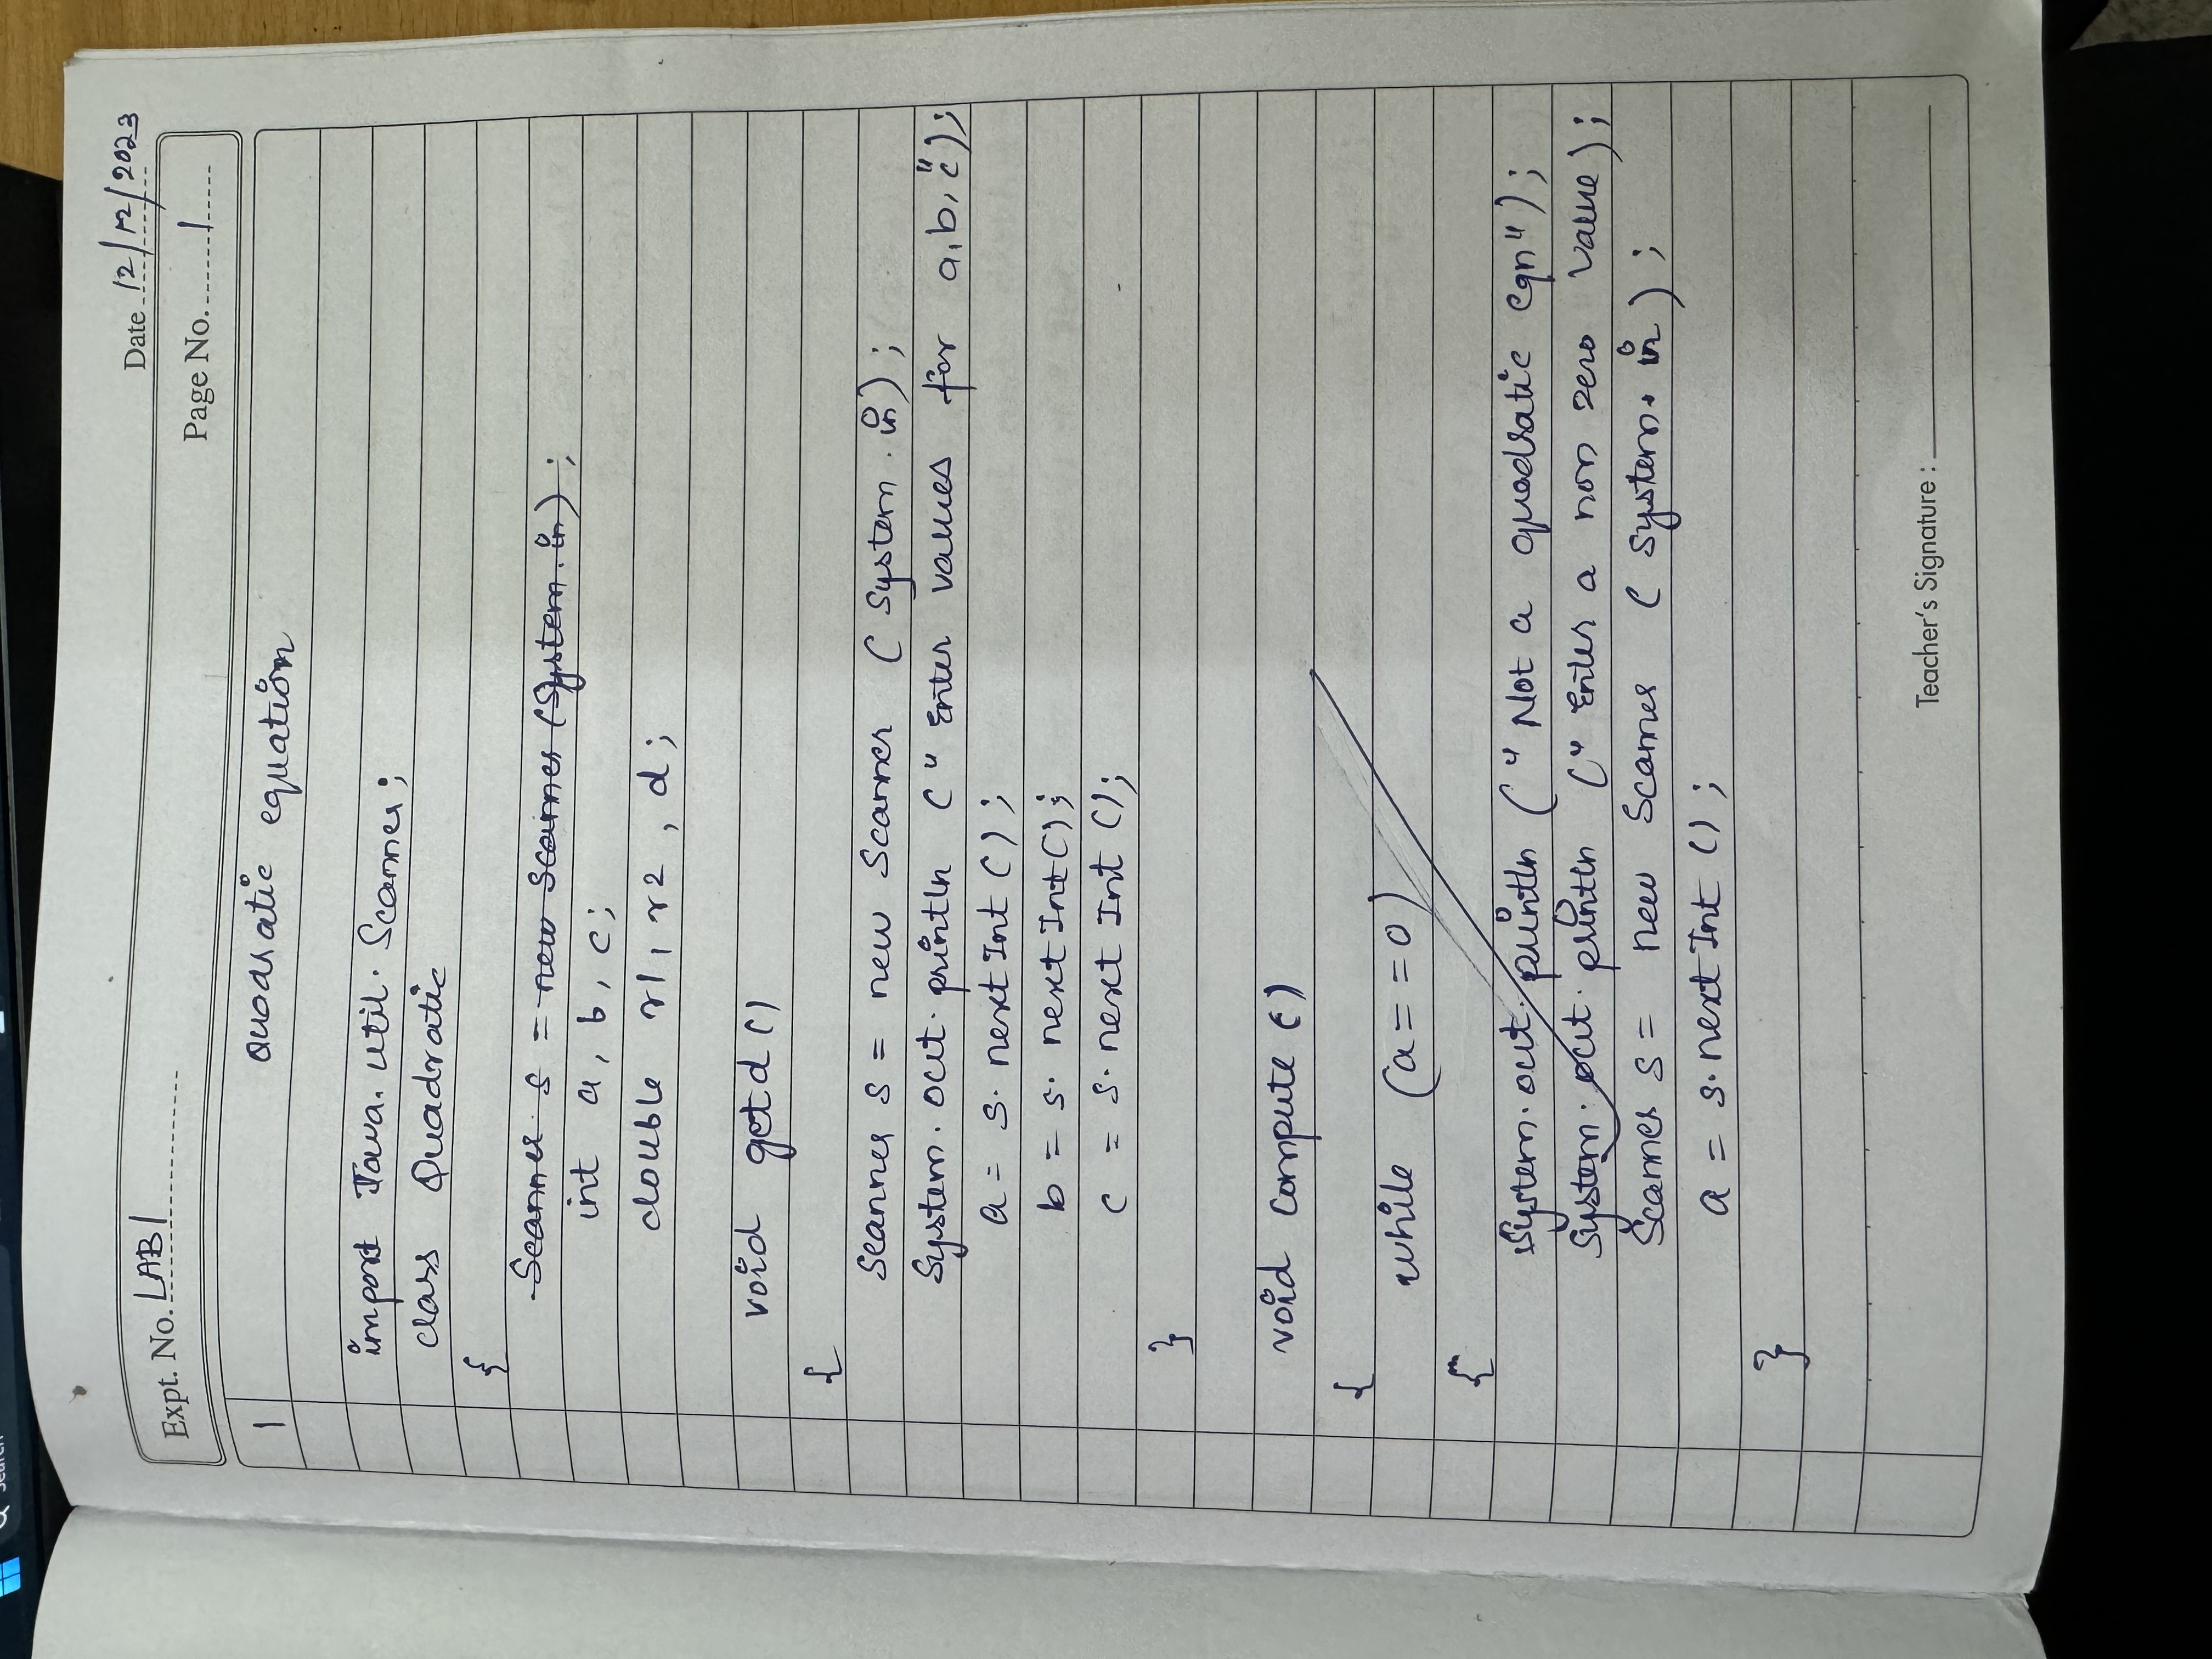 Search
Date 12/12/2023
Expt. No. LAB1
Page No. 1
1 Quadratic equation
import Java.util.Scanner;
class Quadratic
{
Scanner s = new Scanner (System.in);
int a, b, c;
double r1, r2, d;
void getd()
{
Scanner s = new Scanner (System.in);
System.out.println ("Enter values for a,b,c");
a = s.nextInt();
b = s.nextInt();
c = s.nextInt();
}
void compute()
{
while (a==0)
{
System.out.println ("Not a quadratic eqn");
System.out.println ("Enter a non zero value);
Scanner s = new Scanner (System.in);
a = s.nextInt();
}
Teacher's Signature :